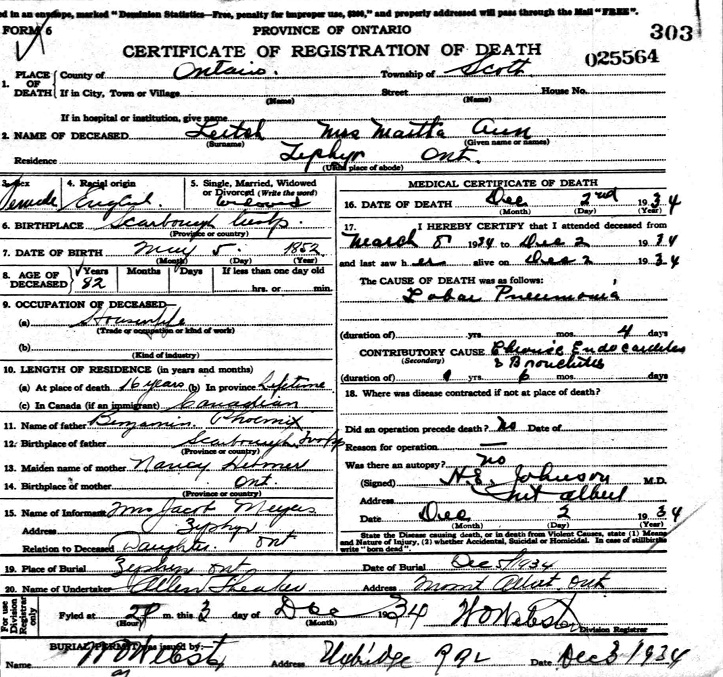 ed in an envelope, marked "Dominion Statistics—Free, penalty for improper use, $300," and properly addressed will pass through the Mail "FREE".
FORM 6 PROVINCE OF ONTARIO 303
CERTIFICATE OF REGISTRATION OF DEATH 025564
1. PLACE OF DEATH County of Ontario. Township of Scott
If in City, Town or Village (Name) Street (Name) House No.
If in hospital or institution, give name
2. NAME OF DECEASED Leitch Mrs Ann
(Surname) (Given name or names)
Residence Zephyr Ont.
(Usual place of abode)
3. Sex 4. Racial origin 5. Single, Married, Widowed or Divorced (Write the word)
Female English Widowed
6. BIRTHPLACE Scarborough
(Province or country)
7. DATE OF BIRTH May 5. 1852
(Month) (Day) (Year)
8. AGE OF DECEASED Years Months Days If less than one day old
82 hrs. or min.
9. OCCUPATION OF DECEASED—
(a) Housewife
(Trade or occupation or kind of work)
(b)
(Kind of industry)
10. LENGTH OF RESIDENCE (in years and months)
(a) At place of death 16 years (b) In province Lifetime
(c) In Canada (if an immigrant) Canadian
11. Name of father Benjamin Phoenix
12. Birthplace of father Scarborough
(Province or country)
13. Maiden name of mother Nancy
14. Birthplace of mother Ont.
(Province or country)
15. Name of Informant Mrs Jacob Meyers
Address Zephyr
Relation to Deceased Daughter Ont
MEDICAL CERTIFICATE OF DEATH
16. DATE OF DEATH Dec 2nd 1934
(Month) (Day) (Year)
17. I HEREBY CERTIFY that I attended deceased from
March 8 1934 to Dec 2 1934
and last saw her alive on Dec 2 1934
The CAUSE OF DEATH was as follows:
Lobar Pneumonia
(duration of) yrs. mos. 4 days
CONTRIBUTORY CAUSE Chronic Endocarditis
(Secondary) & Bronchitis
(duration of) yrs. 6 mos. days
18. Where was disease contracted if not at place of death?
Did an operation precede death? No Date of
Reason for operation —
Was there an autopsy? No
(Signed) H.E. Johnson M.D.
Address Mt Albert
Date Dec 2 1934
(Month) (Day) (Year)
State the Disease causing death, or in death from Violent Causes, state (1) Means
and Nature of Injury, (2) whether Accidental, Suicidal or Homicidal. In case of stillbirths
write "born dead".
19. Place of Burial Zephyr Ont Date of Burial Dec 5/1934
20. Name of Undertaker Allen Address Mount Albert Ont
For use Division Registrar only
Fyled at m. this 3 day of Dec 1934 W O Webster
(Hour) (Month) Division Registrar
BURIAL PERMIT was issued by:—
Name W O Webster Address Uxbridge RR2 Date Dec 3/1934